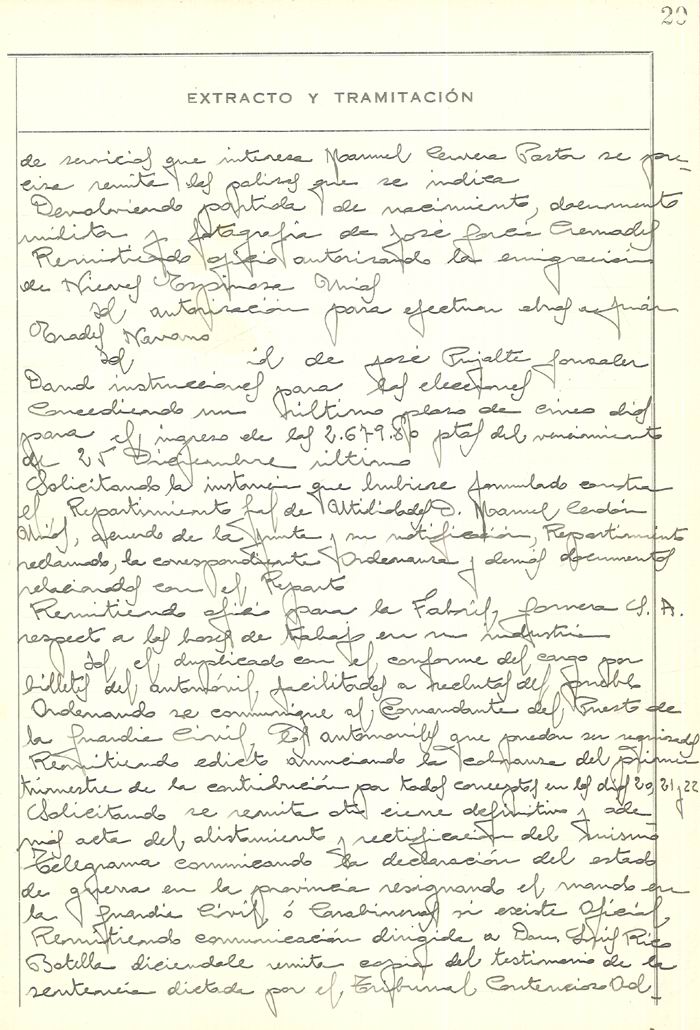 20
EXTRACTO Y TRAMITACIÓN
de servicios que interesa Manuel Cervera Pastor se pre-
cisa remita las polizas que se indica
Devolviendo partida de nacimiento, documento
militar y fotografia de José García Cremades
Remitiendo oficio autorizando la emigracion
de Nieves Espinosa
Id autorizacion para efectuar obras a Juan
Prades Navarro
Id id de José Pujalte Gonzalez
Dando instrucciones para las elecciones
Concediendo un último plazo de cinco dias
para el ingreso de las 2.679.80 ptas del vencimiento
de 25 Diciembre ultimo
Solicitando la instancia que hubiese formulado contra
el Repartimiento gral de Utilidades D. Manuel Cerdán
acuerdo de la Junta y su notificación, Repartimiento
reclamado, la correspondiente Ordenanza y demás documentos
relacionados con el Reparto
Remitiendo oficio para la Fabril, S. A.
respecto a las bases de trabajo en su industria
Id el duplicado con el conforme del cargo por
billetes del automóvil, facilitados a reclutas del pueblo
Ordenando se comunique al Comandante del Puesto de
la Guardia Civil, los automoviles que puedan ser requisados
Remitiendo edicto anunciando la cobranza del primer
trimestre de la contribución por todos conceptos en los dias 20, 21 y 22
Solicitando se remita el cierre definitivo y ade-
más acta del alistamiento y rectificación del mismo
Telegrama comunicando la declaración del estado
de guerra en la provincia resignando el mando en
la Guardia Civil, ó Carabineros si existe Oficial,
Remitiendo comunicación dirigida a Don Luis Rico
Botella diciendole remita copia del testimonio de la
sentencia dictada por el Tribunal Contencioso Ad-